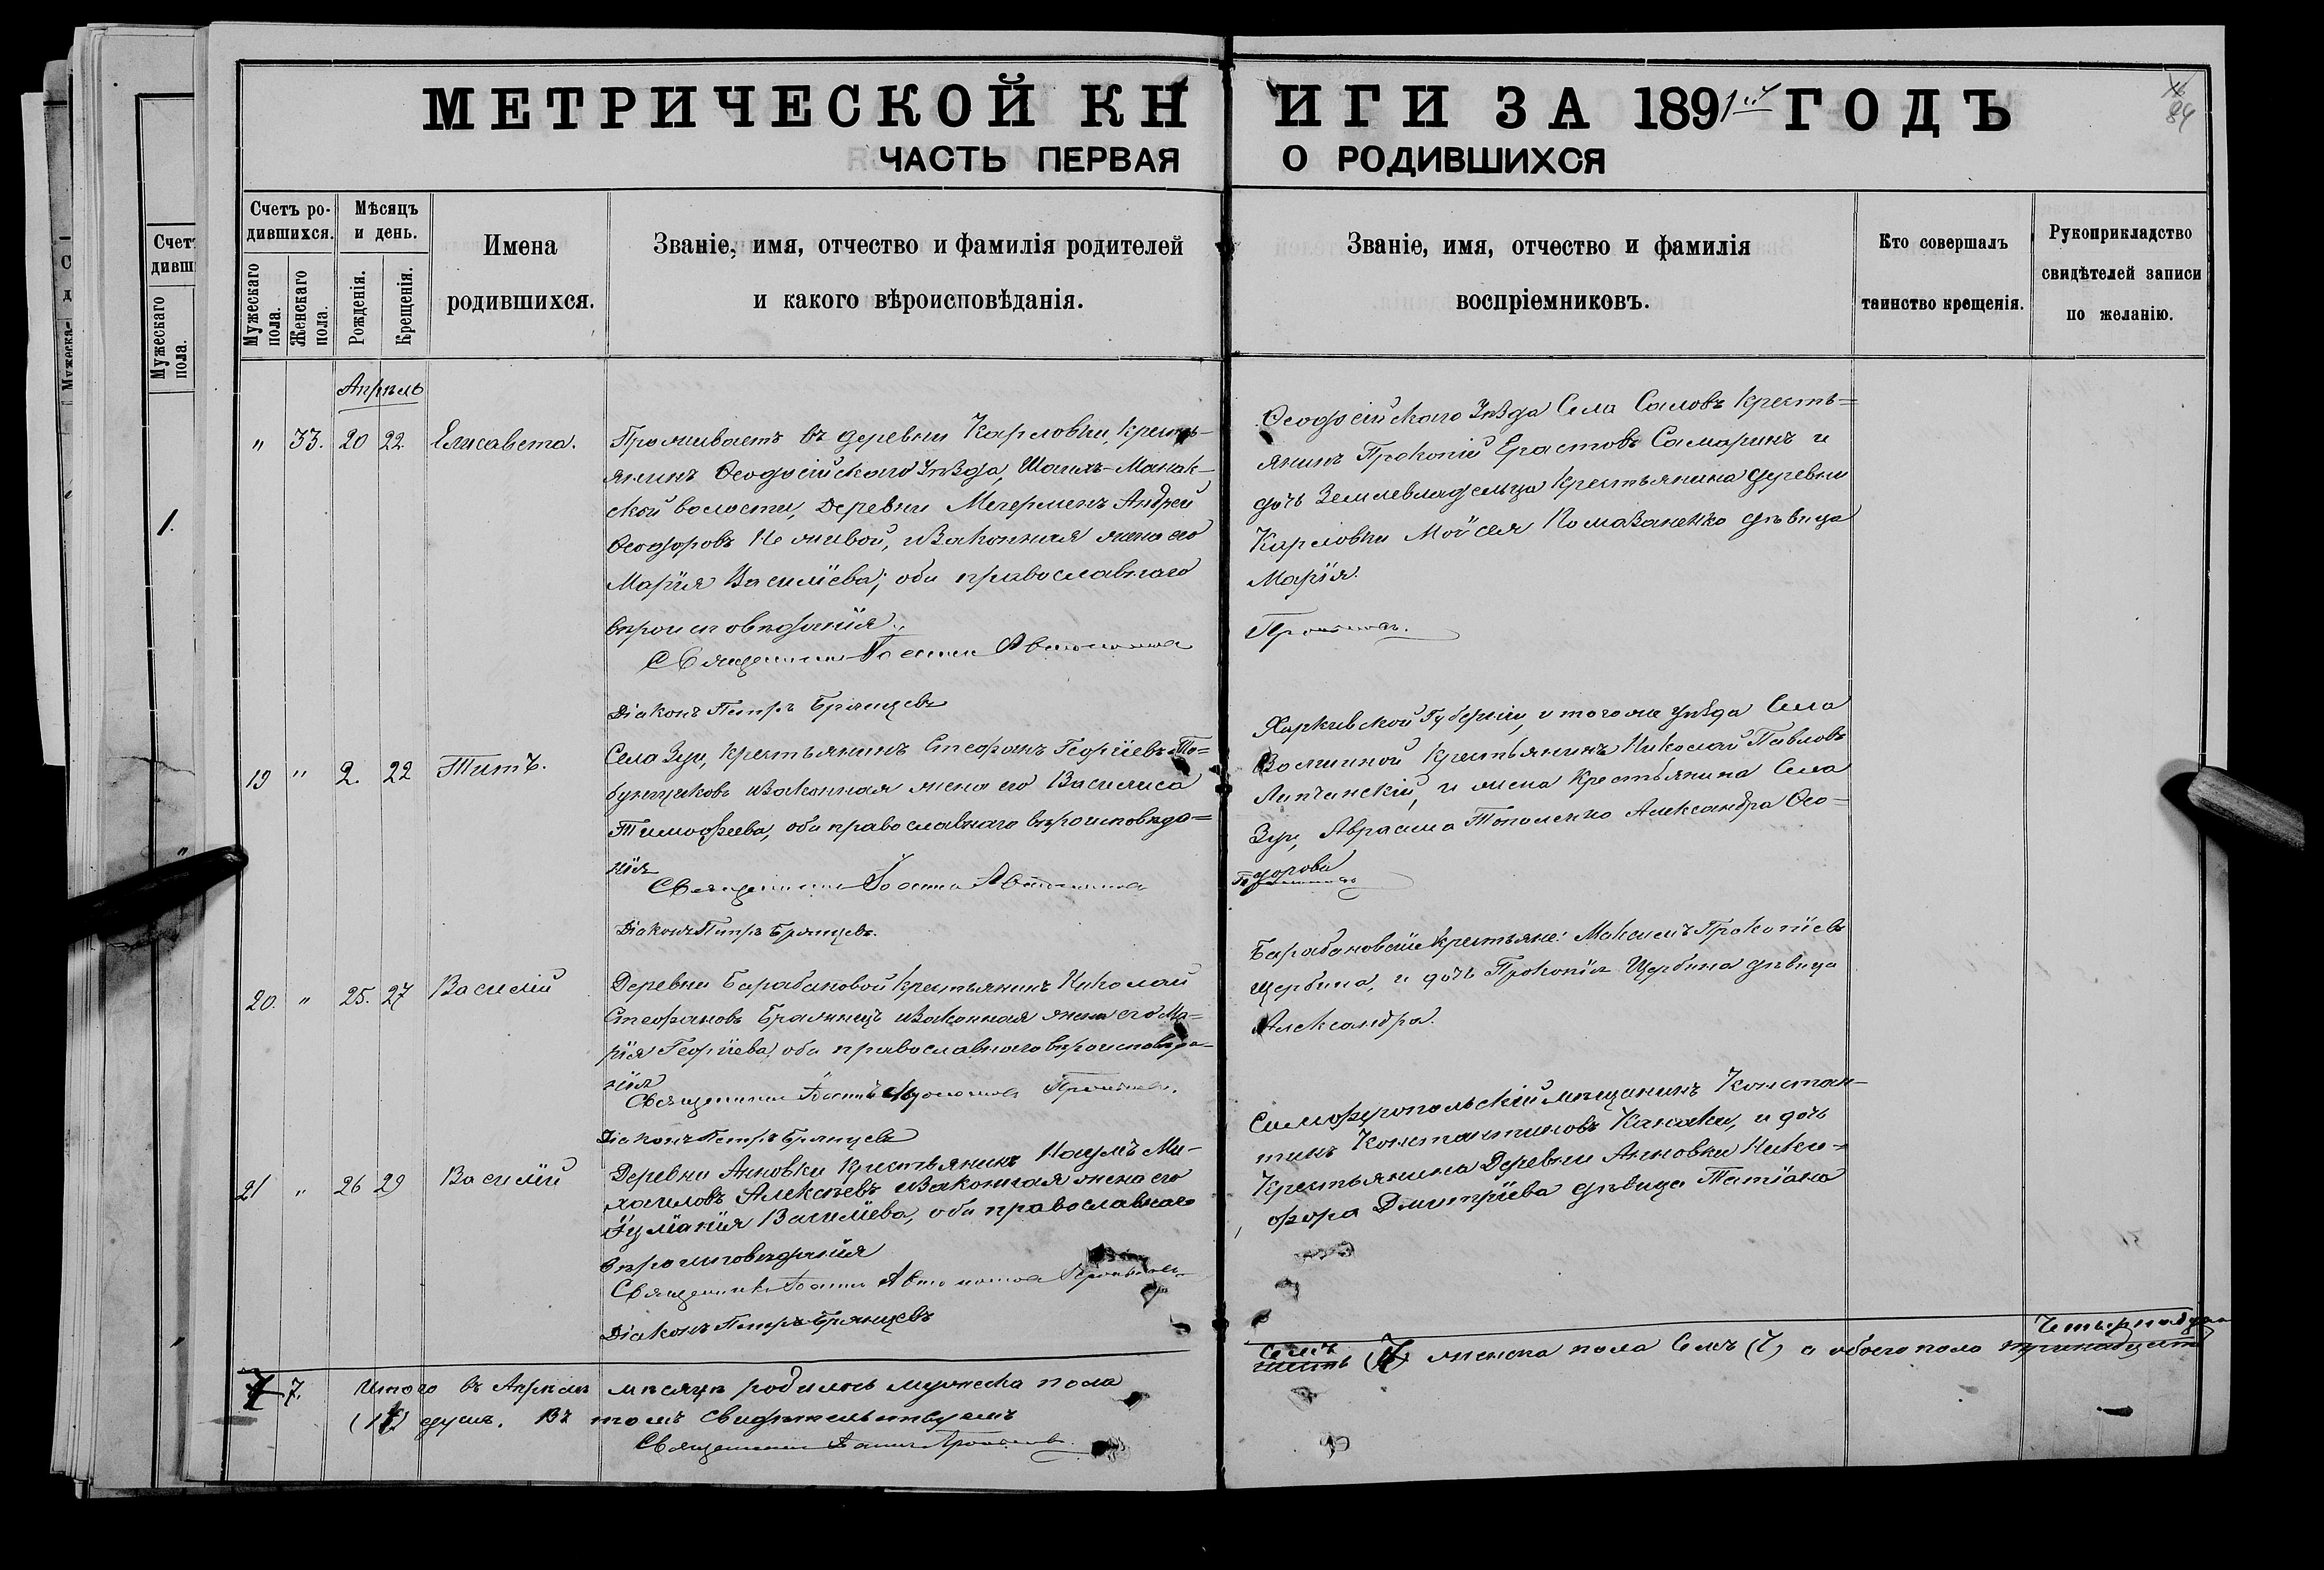 МЕТРИЧЕСКОЙ КНИГИ ЗА 1891й ГОДЪ
ЧАСТЬ ПЕРВАЯ О РОДИВШИХСЯ
84
Счетъ родившихся.
Мужескаго пола.
Женскаго пола.
Мѣсяцъ и день.
Рожденія.
Крещенія.
Имена родившихся.
Званіе, имя, отчество и фамилія родителей
и какого вѣроисповѣданія.
Званіе, имя, отчество и фамилія
воспріемниковъ.
Кто совершалъ
таинство крещенія.
Рукоприкладство
свидѣтелей записи
по желанію.
Апрѣль
" 33. 20 22. Елисавета.
Проживаетъ въ деревни Карловки, кресть-
янинъ Ѳеодосійскаго Уѣзда, Шаихъ-Монак-
ской волости, Деревни Андрей
Ѳеодоровъ Неживой, и Законная жена его
Марія Василіева; оби православнаго
вѣроисповѣданія.
Священникъ
Діаконъ Петръ Брянцевъ
Ѳеодосійскаго Уѣзда Села Саловъ Кресть=
янинъ Прокопій Ерастовъ Самаринъ и
дочь Землевладельца Крестьянина деревни
Карловки Мойсея Помазаненко дѣвица
Марія.
19 " 2. 22 Титъ.
Села Зуи, Крестьянинъ Стефанъ Георгіевъ Та=
бунщиковъ и Законная жена его Василиса
Тимофеева, оби православнаго вѣроисповѣда=
нія
Священникъ
Діаконъ Петръ Брянцевъ.
Харкивской Губерніи, и тогоже уѣзда Села
крестьянинъ Николай Павловъ
Липчинскій, и жена Крестьянина Села
Зуи, Авраама Тополенко Александра Ѳео=
дорова
20. " 25. 27 Василій
Деревни Барабановой крестьянинъ Николай
Стефановъ Бражнецъ и Законная жена его Ма=
рія Георгіева, оби православнаго вѣроисповѣда-
нія
Священникъ
Діаконъ Петръ Брянцевъ
Барабановскіе крестьяне: Максимъ Прокопіевъ
Щербина, и дочь Прокопія Щербина дѣвица
Александра.
21 " 26 29 Василій
Деревни Анновки Крестьянинъ Наумъ Ми-
хаиловъ Алексѣевъ и Законная жена его
Іуліанія Василіева, оби православнаго
вѣроисповѣданія
Священникъ
Діаконъ Петръ Брянцевъ
Симферопольскій мѣщанинъ Констан-
тинъ Константиновъ Канаки, и дочь
Крестьянина Деревни Анновки Ники=
фора Димитріева дѣвица Татіана
7 7. Итого въ Апрѣлѣ мѣсяцѣ родилось мужеска пола
семь (7) женска пола Семь (7) а обоего пола Четырнадцать
(14) душъ. Въ томъ свидѣтельствуемъ
Священникъ
Счетъ
дивши
Мужескаго пола.
1.